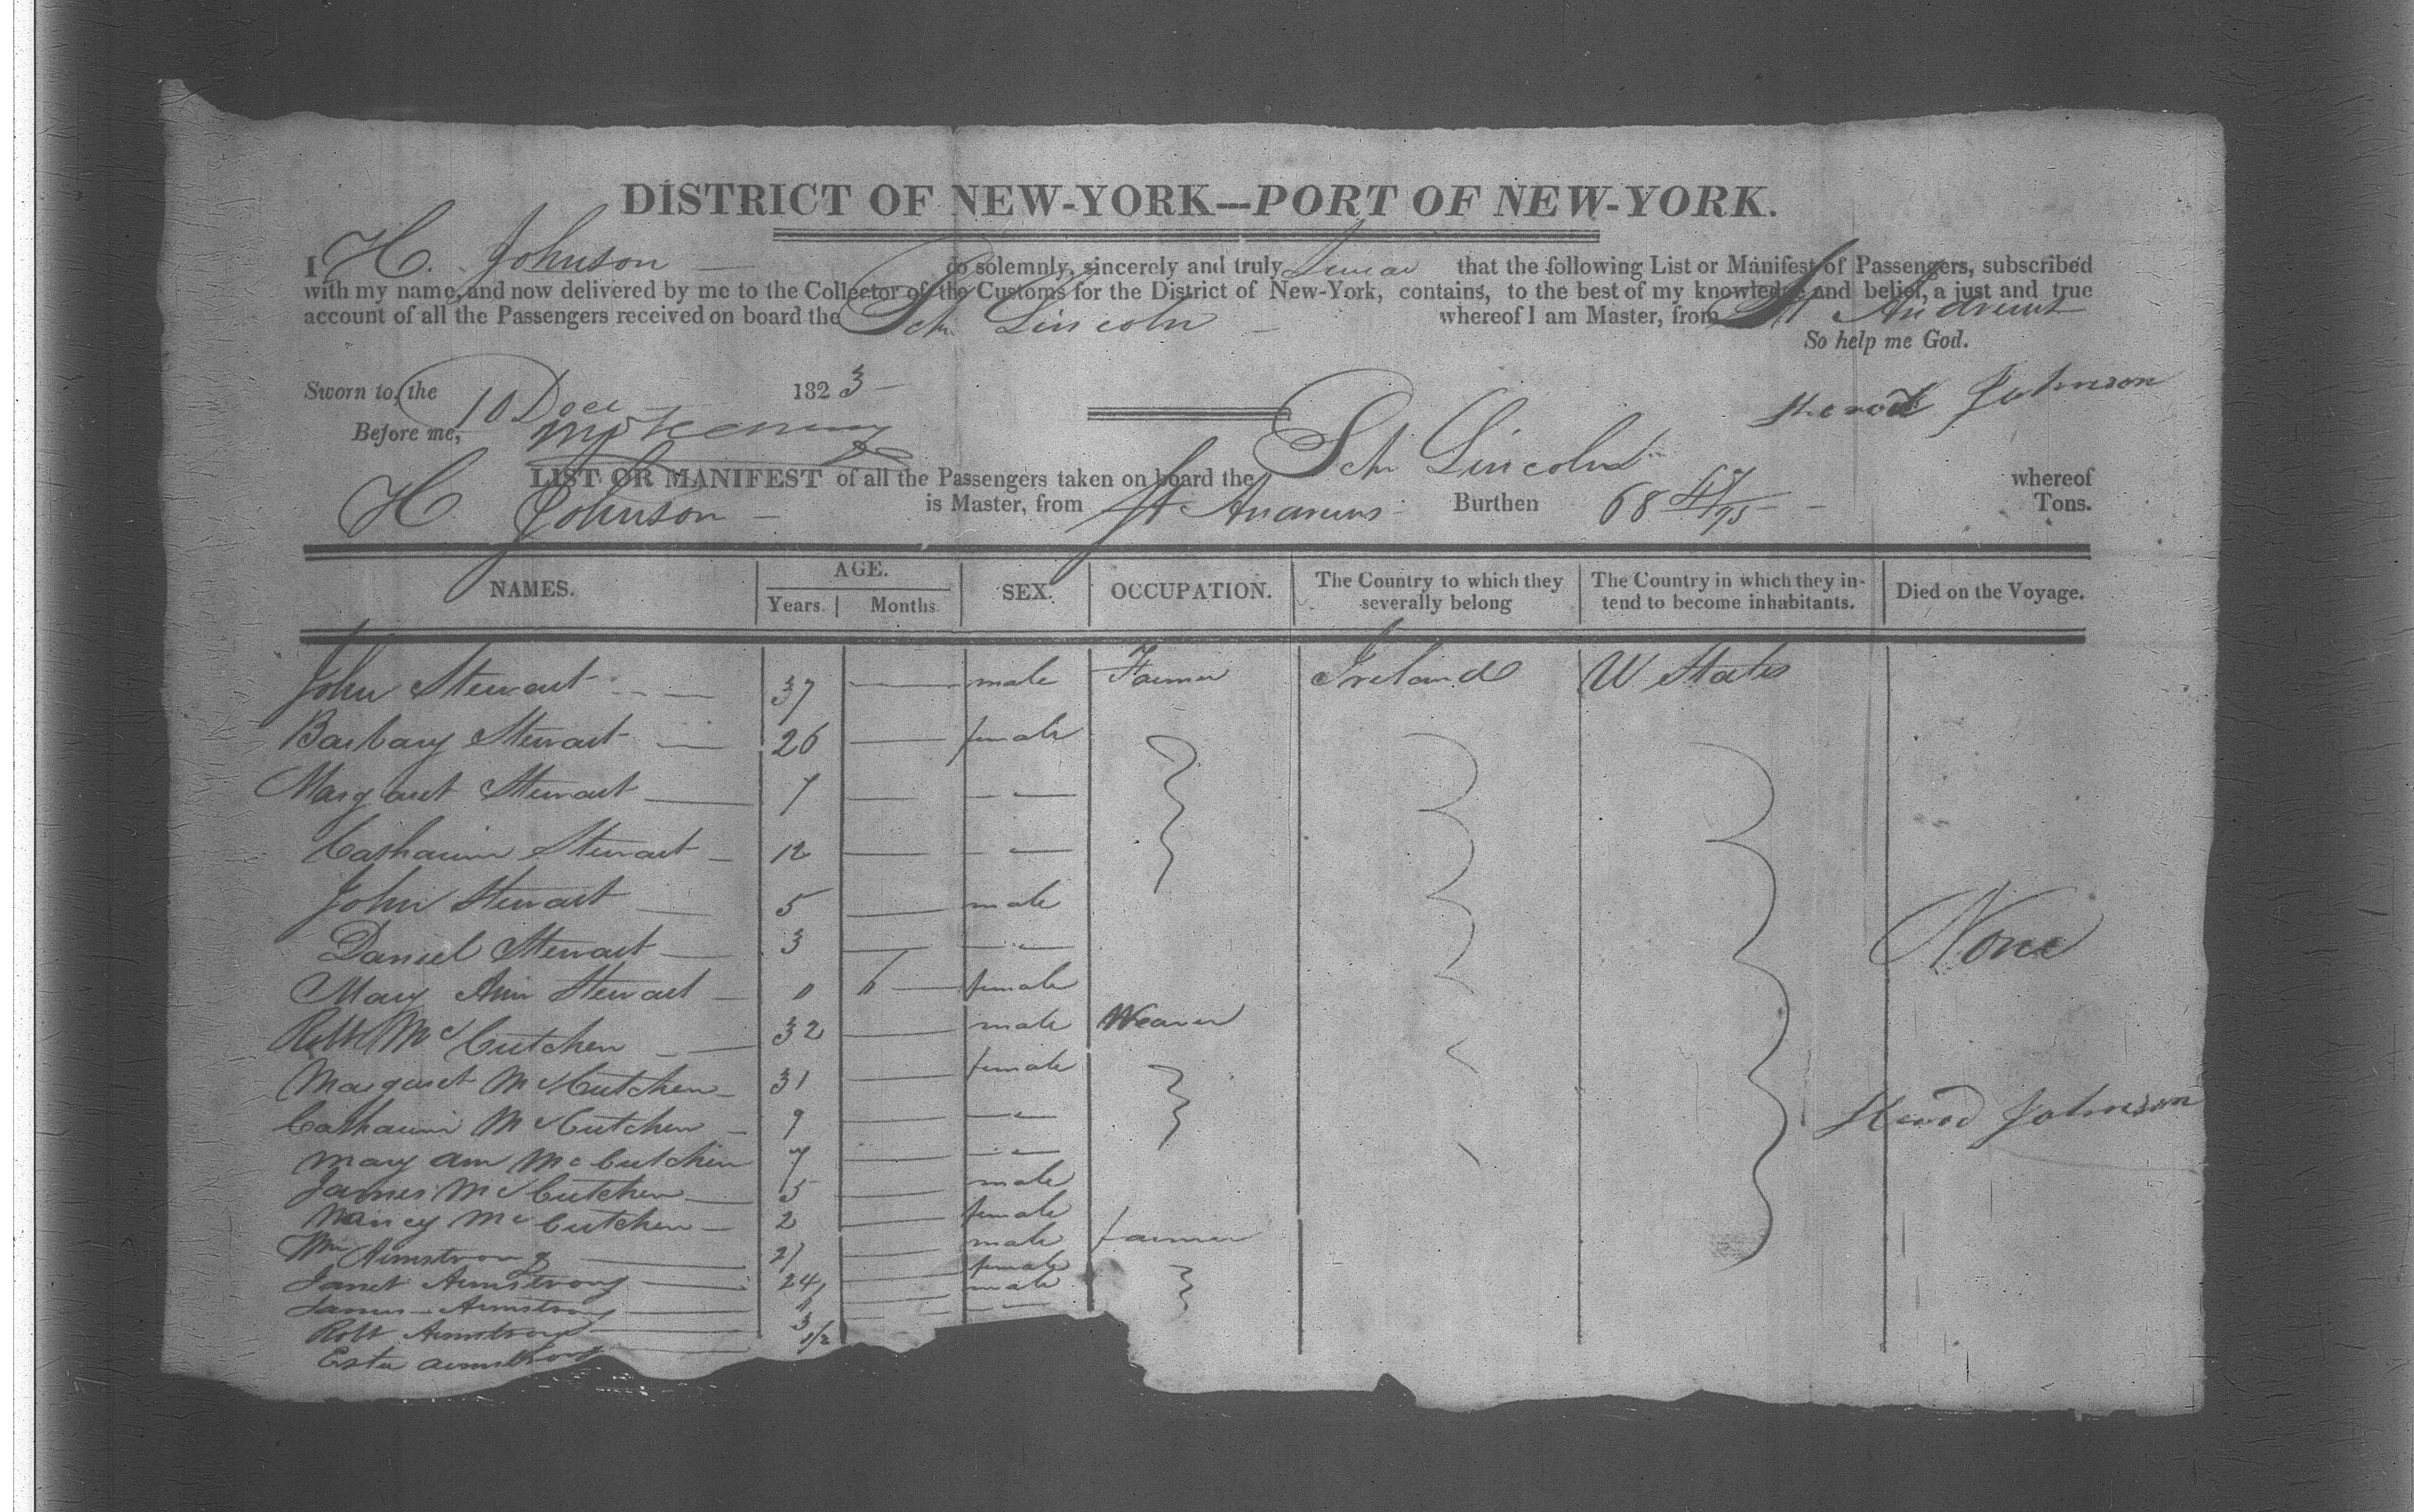 DISTRICT OF NEW-YORK—PORT OF NEW-YORK.
I H. Johnson do solemnly, sincerely and truly Swear that the following List or Manifest of Passengers, subscribed
with my name, and now delivered by me to the Collector of the Customs for the District of New-York, contains, to the best of my knowledge and belief, a just and true
account of all the Passengers received on board the Schr Lincoln whereof I am Master, from St Andrews
So help me God.
Sworn to, the 10 Dec 1823
Herod Johnson
Before me,
LIST OR MANIFEST of all the Passengers taken on board the Schr Lincoln whereof
H Johnson is Master, from St Andrews Burthen 68 47/95 Tons.
NAMES. AGE. Years. Months. SEX. OCCUPATION. The Country to which they severally belong The Country in which they intend to become inhabitants. Died on the Voyage.
John Stewart 37 male Farmer Ireland U States
Barbary Stewart 26 female
Margaret Stewart 7
Catharine Stewart 12
John Stewart 5 male
Daniel Stewart 3 None
Mary Ann Stewart 0 6 female
Robt McCutchen 32 male Weaver
Margaret McCutchen 31 female
Catharine McCutchen 9 Herod Johnson
Mary Ann McCutchen 7
James McCutchen 5 male
Nancy McCutchen 2 female
Wm Armstrong 21 male farmer
Janet Armstrong 24 female
James Armstrong male
Robt Armstrong 3
Ester Armstrong 1/2